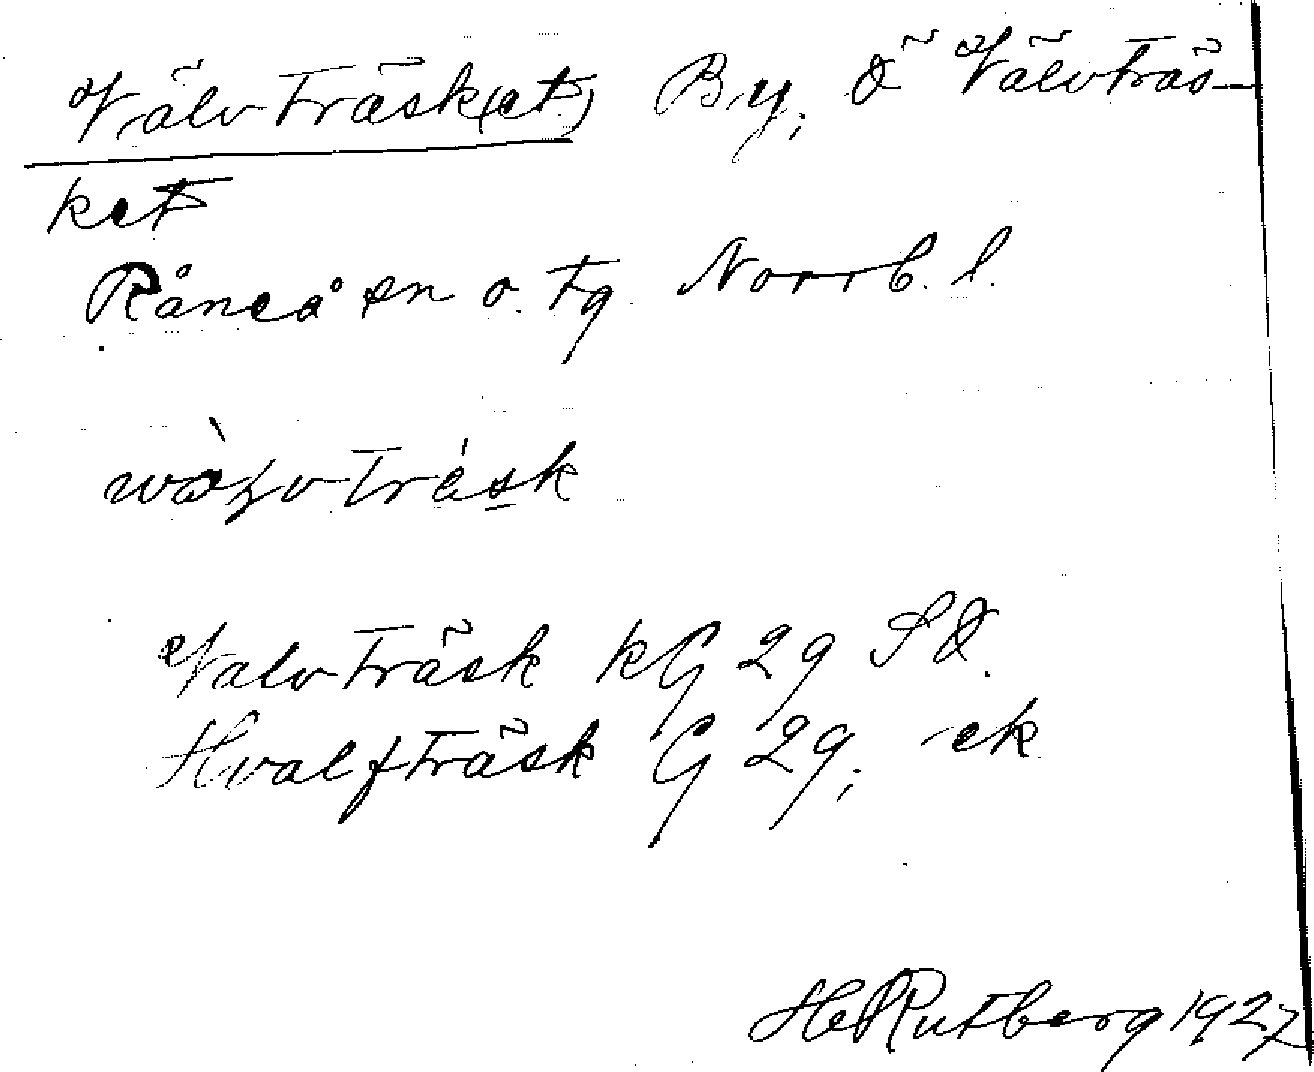 Välvträsk(et) By, Ö Välvträs-
ket
Råneå sn o. tg Norrb. l.
Valvträsk kG 29 SÖ.
Hvalfträsk G 29; ek
HeRutberg 1927